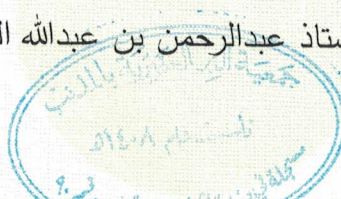 ستاذ عبدالرحمن بن عبدالله ال
جمعية البر الخيرية بالمذنب
تأسست عام ١٤٠٨هـ
مسجلة